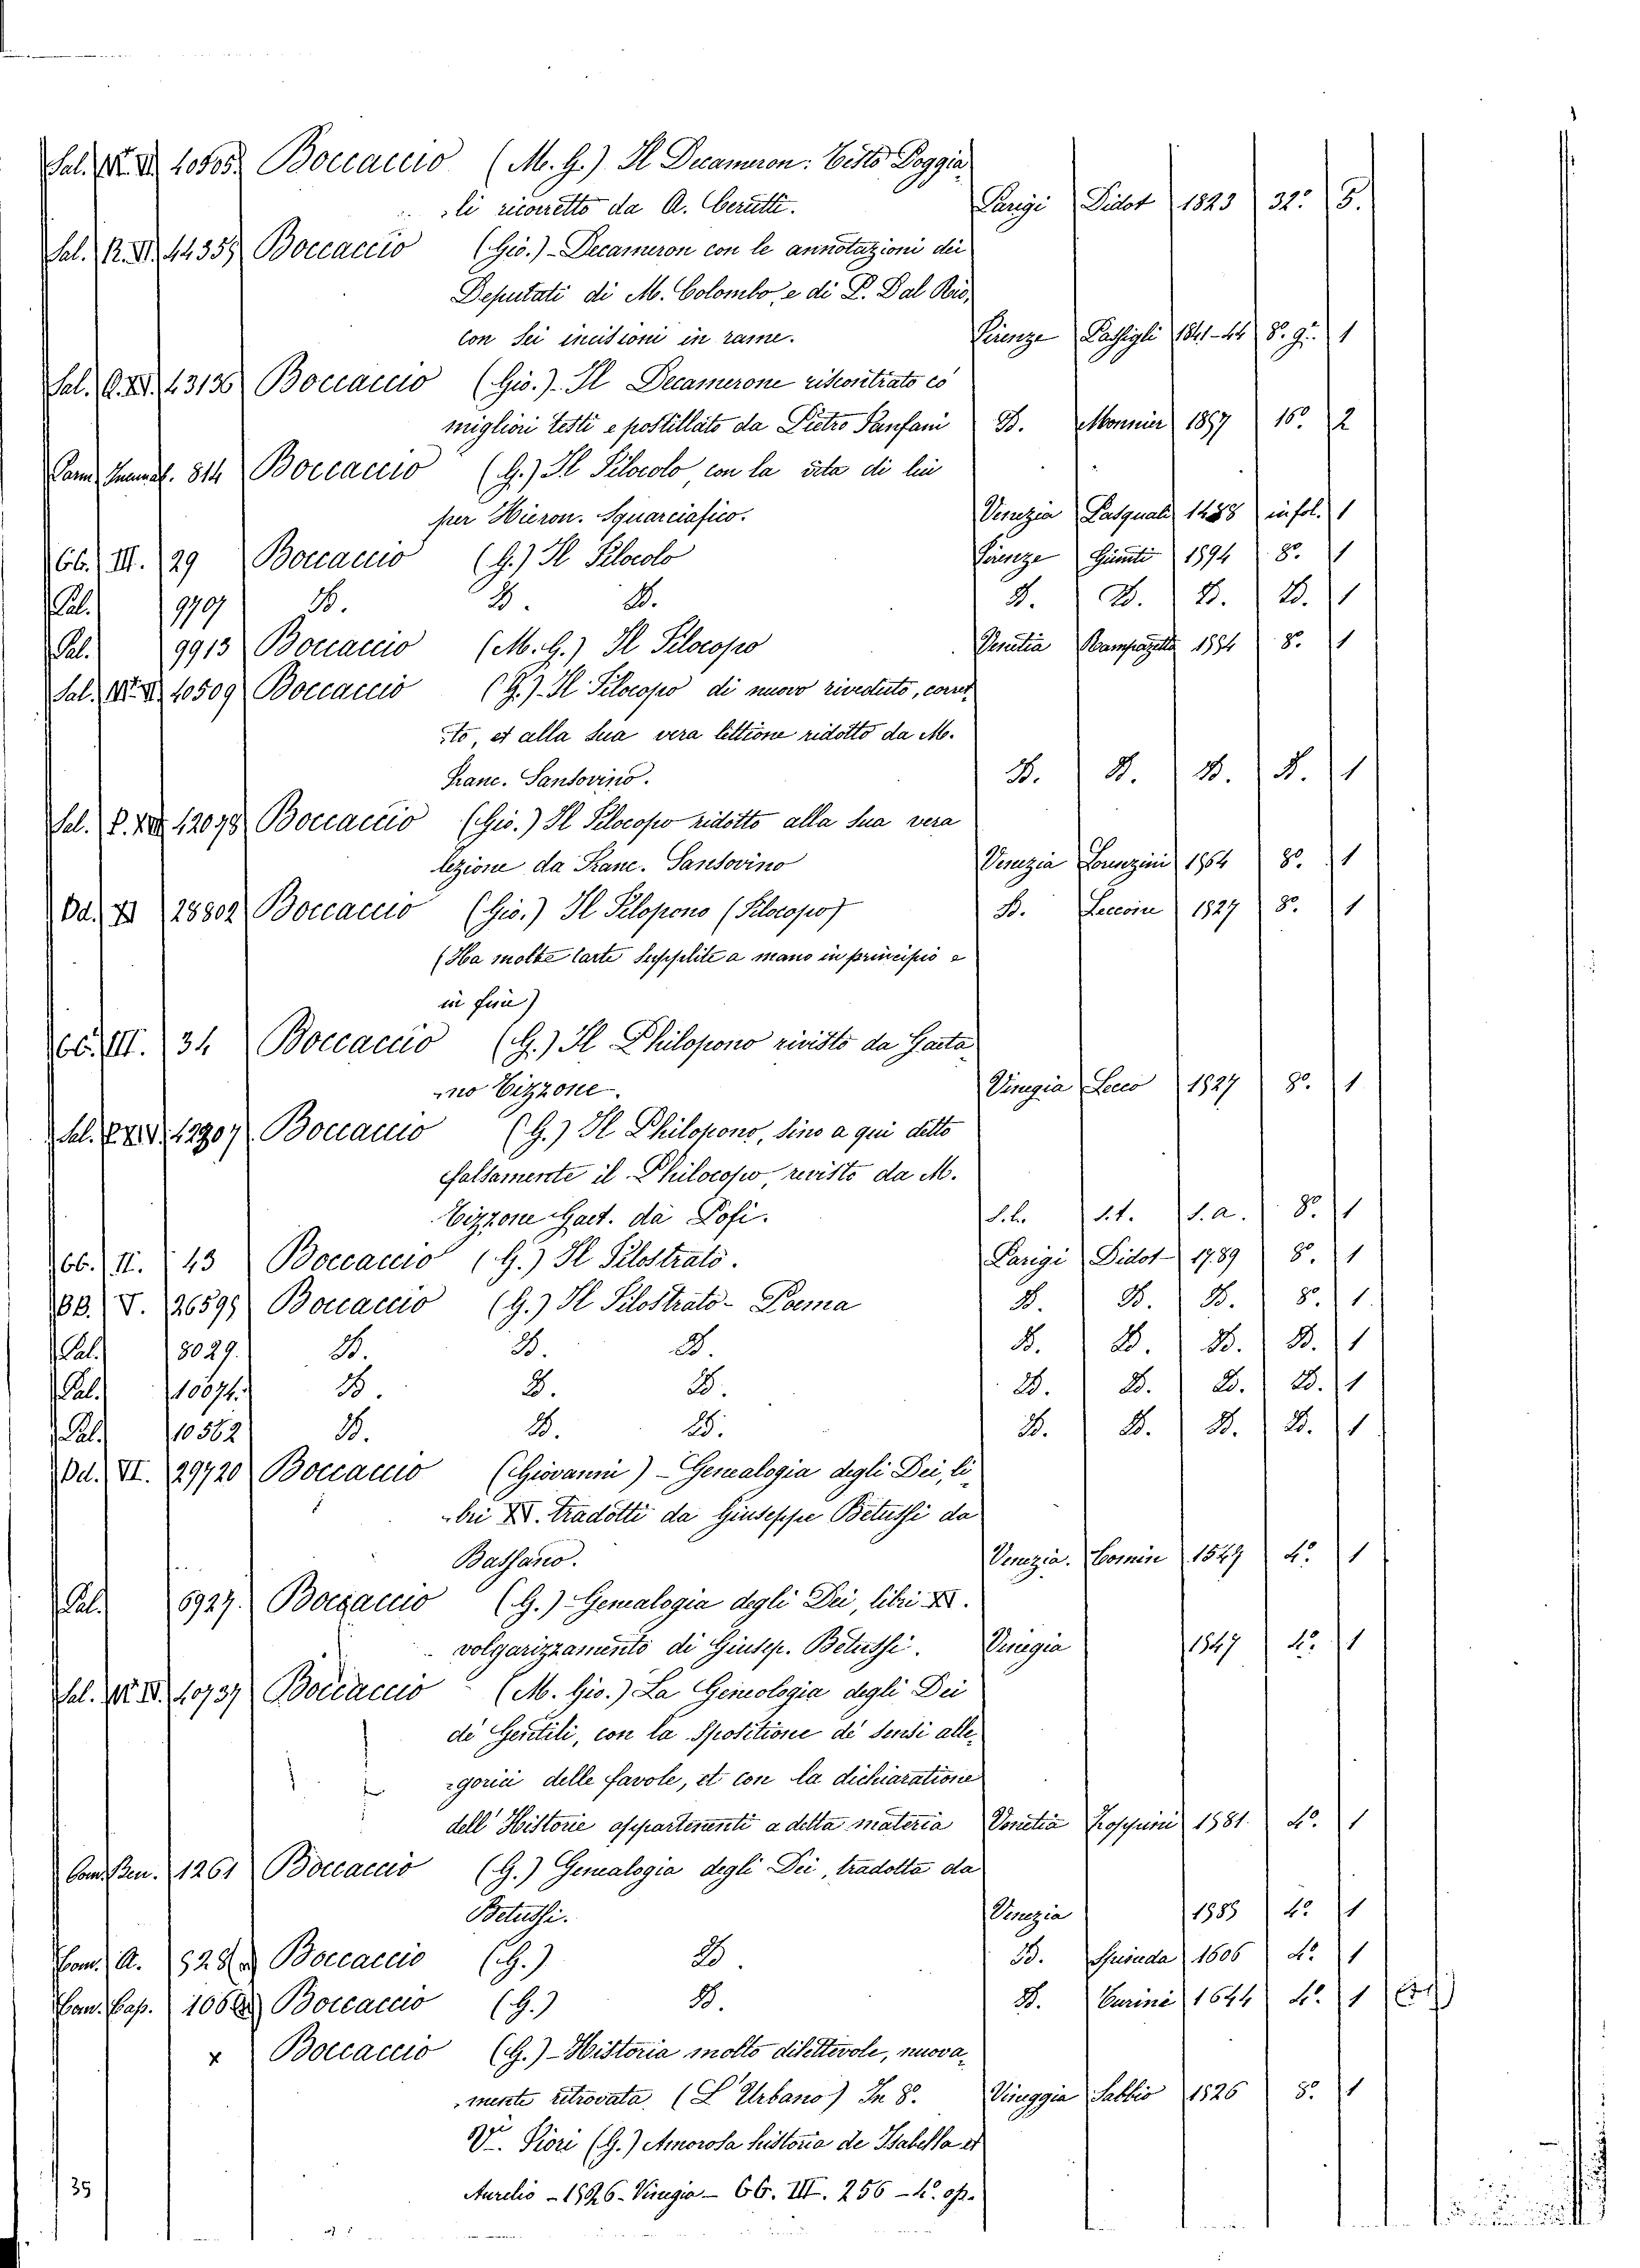 Sal. 10505 Boccaccio (M. G.) Il Decameron: Testo Poggia
li ricorretto da A. Cerutti. Parigi Didot 1823 32.° 5.
Sal. 44355 Boccaccio (Gio.) - Decameron con le annotazioni dei
Deputati di M. Colombo, e di P. Dal Rio,
con sei incisioni in rame. Firenze Passigli 1841-44 8.° g. 1
Sal. 43136 Boccaccio (Gio.) - Il Decamerone riscontrato co'
migliori testi e postillato da Pietro Fanfani D. Monnier 1857 16.° 2
814 Boccaccio (G.) Il Filocolo, con la vita di lui
per Hieron. Squarciafico. Venezia Pasquali 1488 in fol. 1
66. III. 29 Boccaccio (G.) Il Filocolo Firenze Giunti 1594 8.° 1
Pal. 9707 D. D. D. D. D. D. D. 1
Pal. 9913 Boccaccio (M. G.) Il Filocopo Venetia Rampazetto 1554 8.° 1
Sal. 10509 Boccaccio (G.) - Il Filocopo di nuovo riveduto, corret
to, et alla sua vera lettione ridotto da M.
Franc. Sansovino. D. D. D. D. 1
Sal. 12078 Boccaccio (Gio.) Il Filocopo ridotto alla sua vera
lezione da Franc. Sansovino Venezia Lorenzini 1564 8.° 1
Od. 28802 Boccaccio (Gio.) Il Filopono (Filocopo) D. 1527 8.° 1
(Ha molte carte supplite a mano in principio e
in fine)
66. III. 34 Boccaccio (G.) Il Philopono rivisto da Gaeta
no Tizzone. Vinegia Lecco 1527 8.° 1
Sal. 12907 Boccaccio (G.) Il Philopono, sino a qui detto
falsamente il Philocopo, revisto da M.
Tizzone Gaet. da Pofi. s. l. s. t. s. a. 8.° 1
66. II. 43 Boccaccio (G.) Il Filostrato. Parigi Didot 1789 8.° 1
BB. V. 26595 Boccaccio (G.) Il Filostrato - Poema D. D. D. 8.° 1.
Pal. 8029. D. D. D. D. D. D. D. 1
Pal. 10674. D. D. D. D. D. D. D. 1
Pal. 10562 D. D. D. D. D. D. D. 1
Od. VI. 29720 Boccaccio (Giovanni) - Genealogia degli Dei, li
bri XV. tradotti da Giuseppe Betussi da
Bassano. Venezia. Comin 1549 4.° 1
Pal. 6927. Boccaccio (G.) - Genealogia degli Dei, libri XV.
volgarizzamento di Giusep. Betussi. Vinegia 1547 4.° 1
Sal. 10737 Boccaccio (M. Gio.) La Geneologia degli Dei
de Gentili, con la Spositione de sensi alle
gorici delle favole, et con la dichiaratione
dell' Historie appartenenti a detta materia Venetia 1581. 4.° 1
Com. Ben. 1261 Boccaccio (G.) Genealogia degli Dei, tradotta da
Betussi. Venezia 1585 4.° 1
Com. A. 528 Boccaccio (G.) D. D. 1606 4.° 1
Com. Cap. Boccaccio (G.) D. D. Turini 1644 4.° 1
x Boccaccio (G.) - Historia molto dilettevole, nuova
mente ritrovata. (L' Urbano) In 8.° Vineggia Sabbio 1526 8.° 1
V. Fiori (G.) Amorosa historia de Isabella et
Aurelio - 1526 - Vinegia - 66. III. 256 - 4.° op.
35